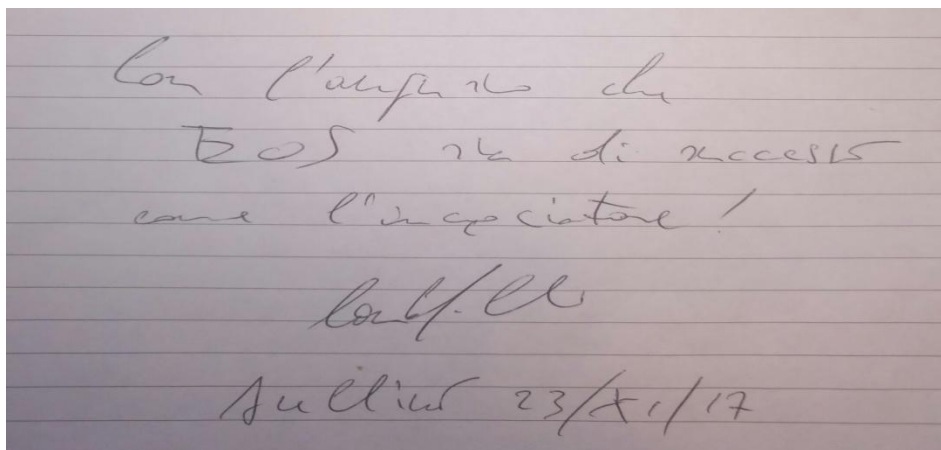 Con l'augurio che
EOS sia di successo
come l'incrociatore!
Avellino 23/XI/17